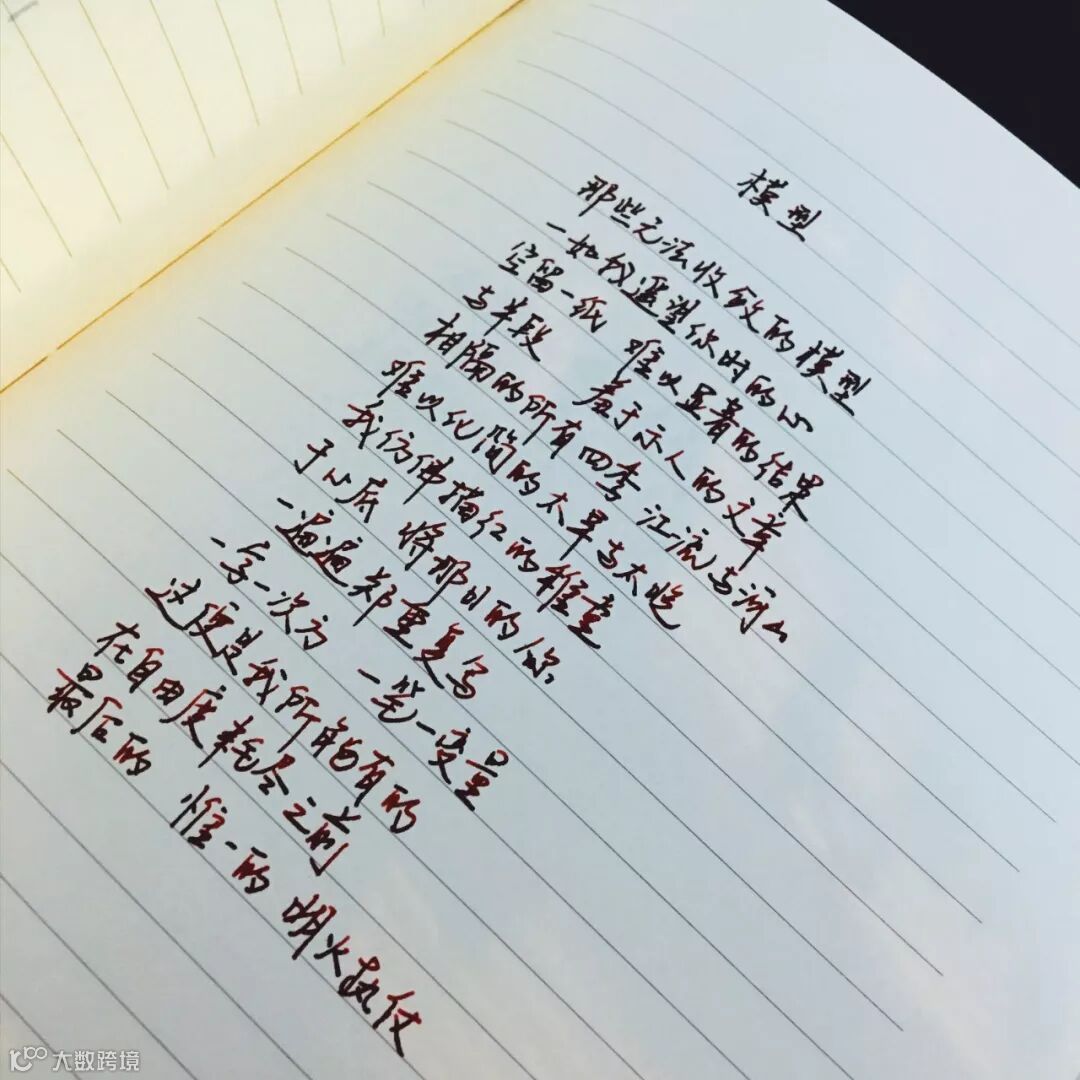 模型
那些无法收敛的模型
一如我遥望你时的心
空留一纸 难以显着的结果
与半段 羞于示人的文章
相隔的所有四季 江流与河山
难以化简的太早与太晚
我仿佛描红的稚童
于心底 将那日的你
一遍遍郑重复写
一字一次方 一笔一变量
这便是我所能有的
在自由度耗尽之前
最后的 惟一的 明火执仗
大数跨境